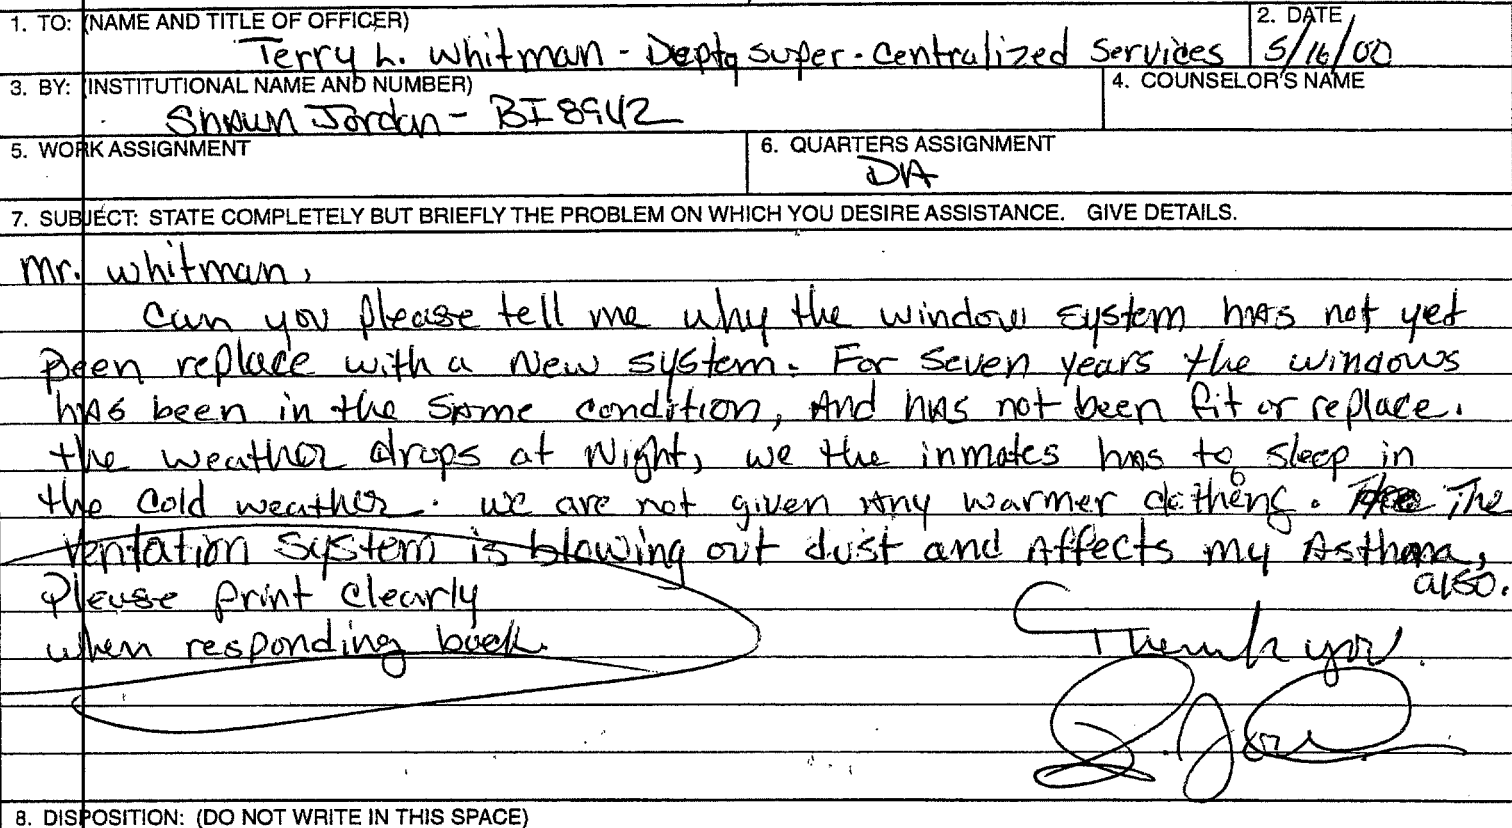 1. TO: (NAME AND TITLE OF OFFICER)
Terry L. Whitman - Depty super. Centralized Services
2. DATE
5/16/00
3. BY: (INSTITUTIONAL NAME AND NUMBER)
Shawn Jordan - BI8942
4. COUNSELOR'S NAME
5. WORK ASSIGNMENT
6. QUARTERS ASSIGNMENT
DA
7. SUBJECT: STATE COMPLETELY BUT BRIEFLY THE PROBLEM ON WHICH YOU DESIRE ASSISTANCE. GIVE DETAILS.
Mr. Whitman,
Can you please tell me why the window system has not yet
been replace with a New system. For Seven years the windows
has been in the same condition, And has not been fit or replace.
the weather drops at Night, we the inmates has to sleep in
the cold weather. we are not given Any warmer clothing. The
Ventation System is blowing out dust and Affects my Asthma,
also.
Please print clearly
when responding back.
Thank you.
S. Jor
8. DISPOSITION: (DO NOT WRITE IN THIS SPACE)